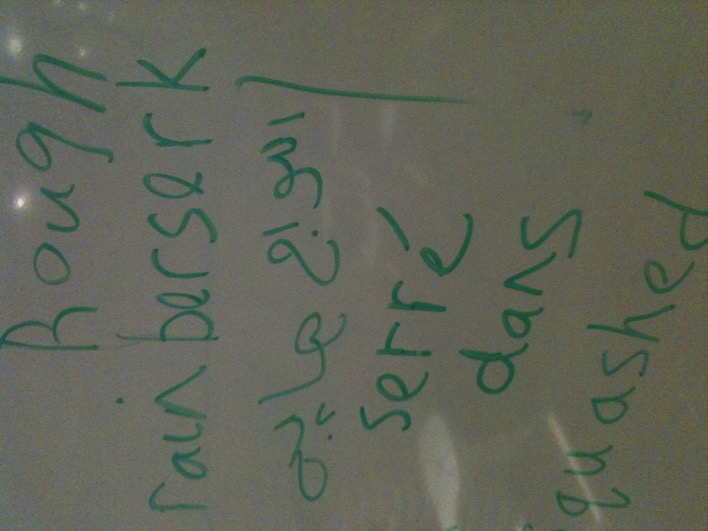 Rough
rain berserk
serré
dans
squashed